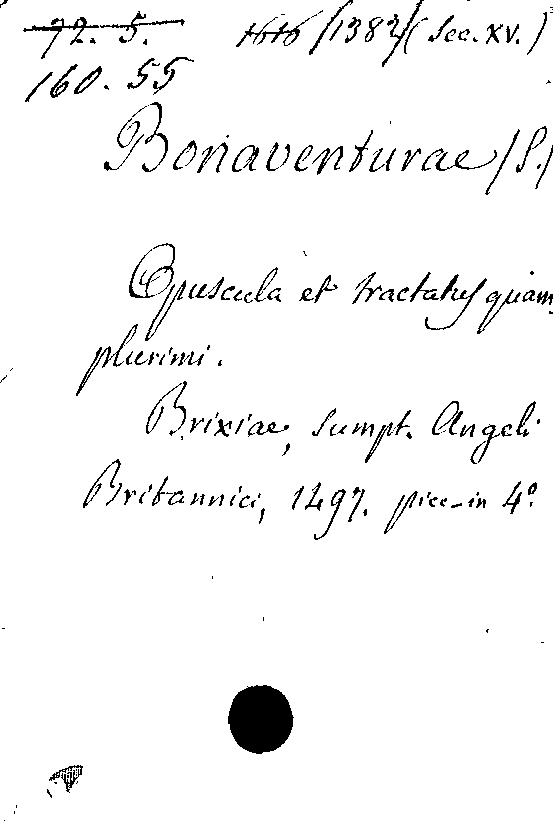 72. 5. 1616 /1382/ (Sec. XV.)
160. 55
Bonaventurae /S./
Opuscula et tractatus quam
plurimi.
Brixiae, sumpt. Angeli
Britannici, 1497. picc-in 4º